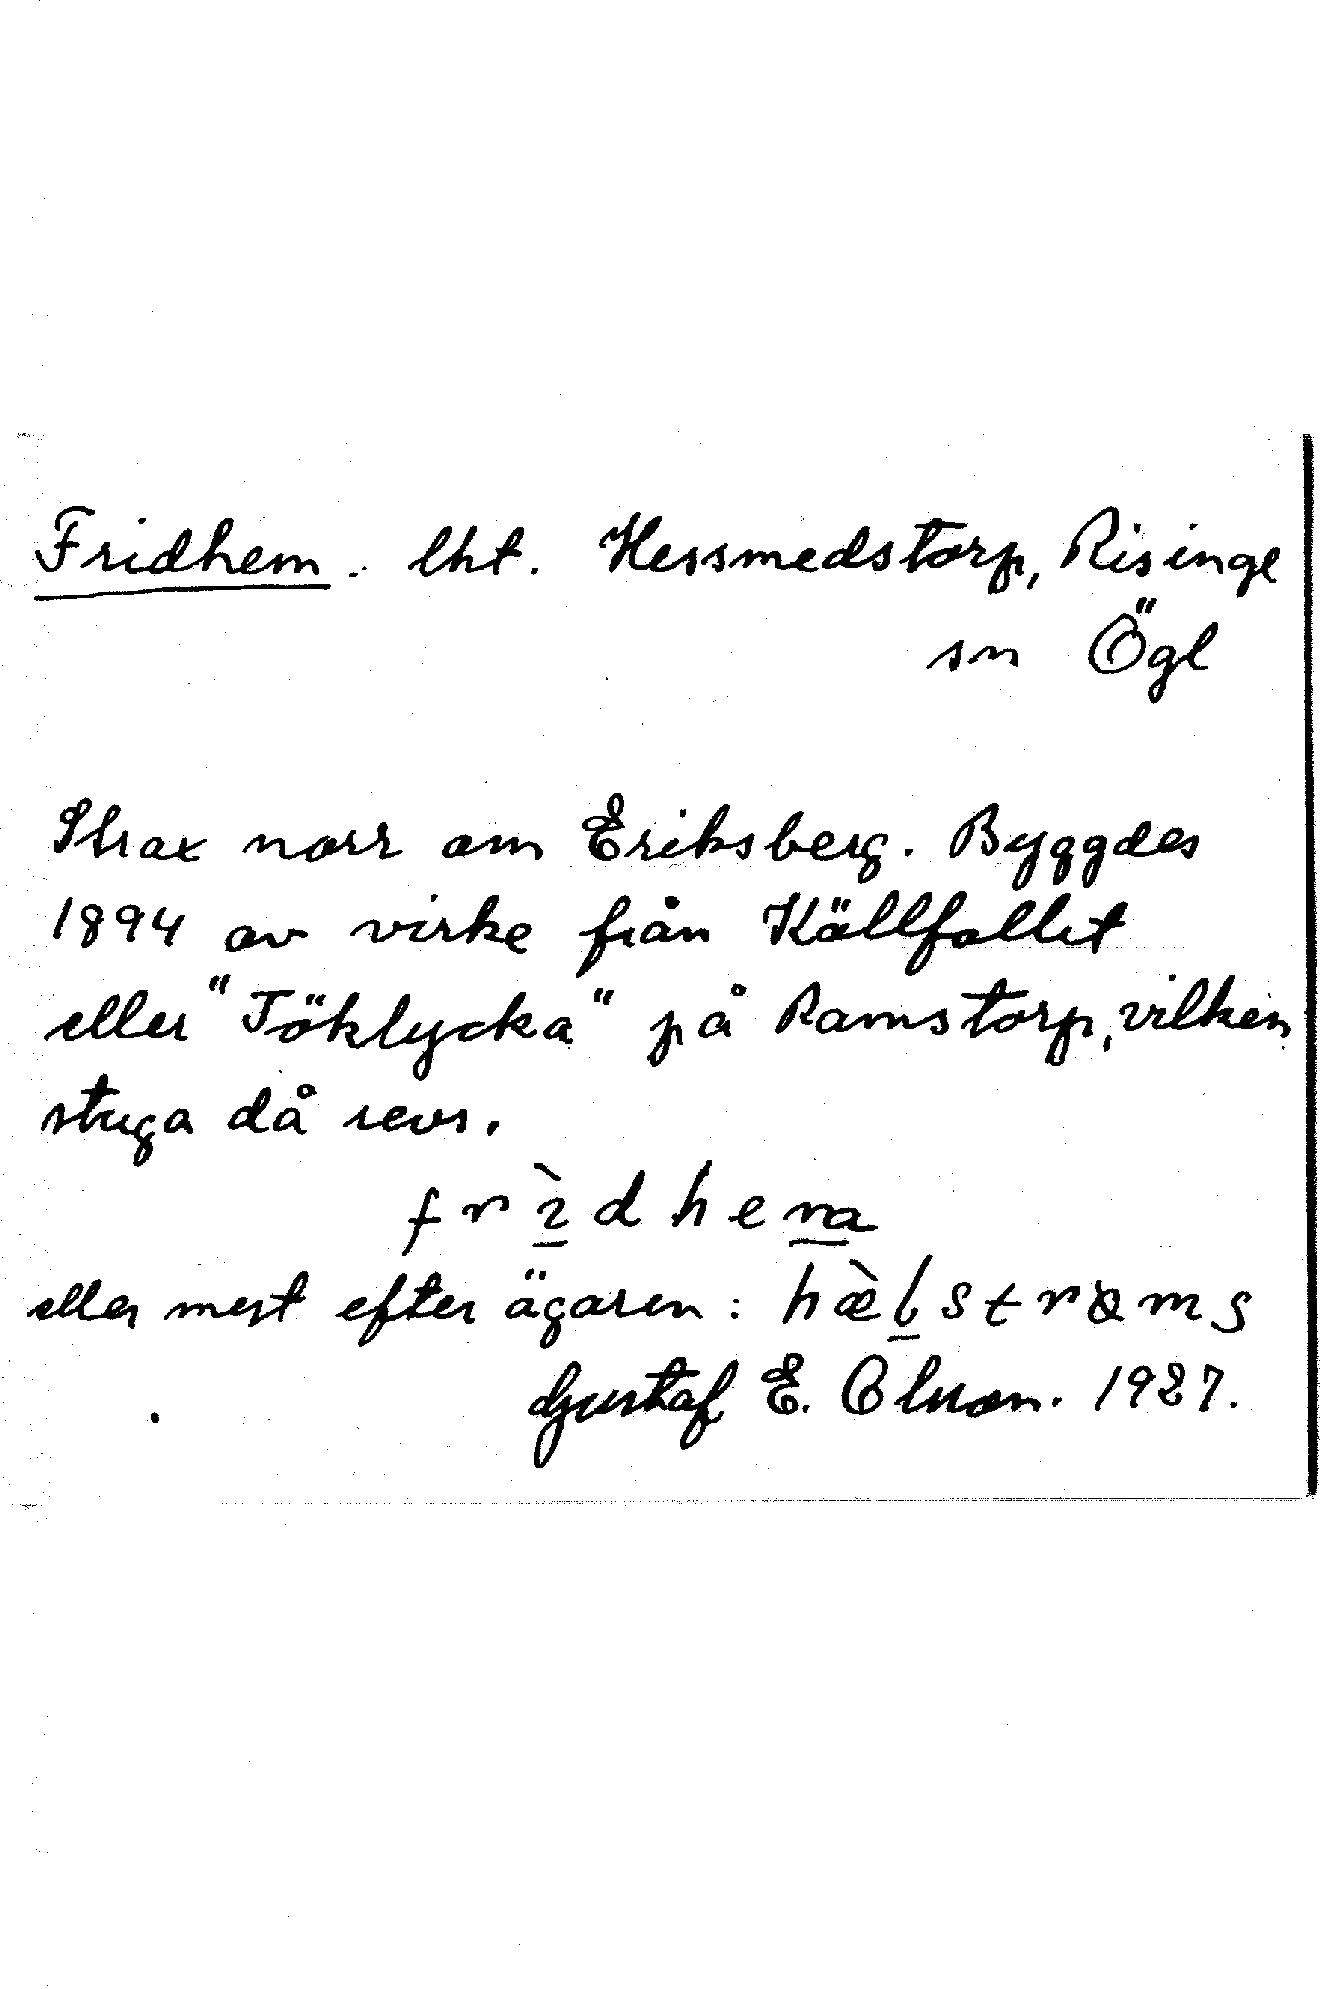 Fridhem. lht. Hessmedstorp, Risinge
sn Ögl
Strax norr om Eriksberg. Byggdes
1894 av virke från Källfallet
eller "Töklycka" på Ramstorp, vilken
stuga då revs.
eller mest efter ägaren:
Gustaf E. Olsson. 1927.